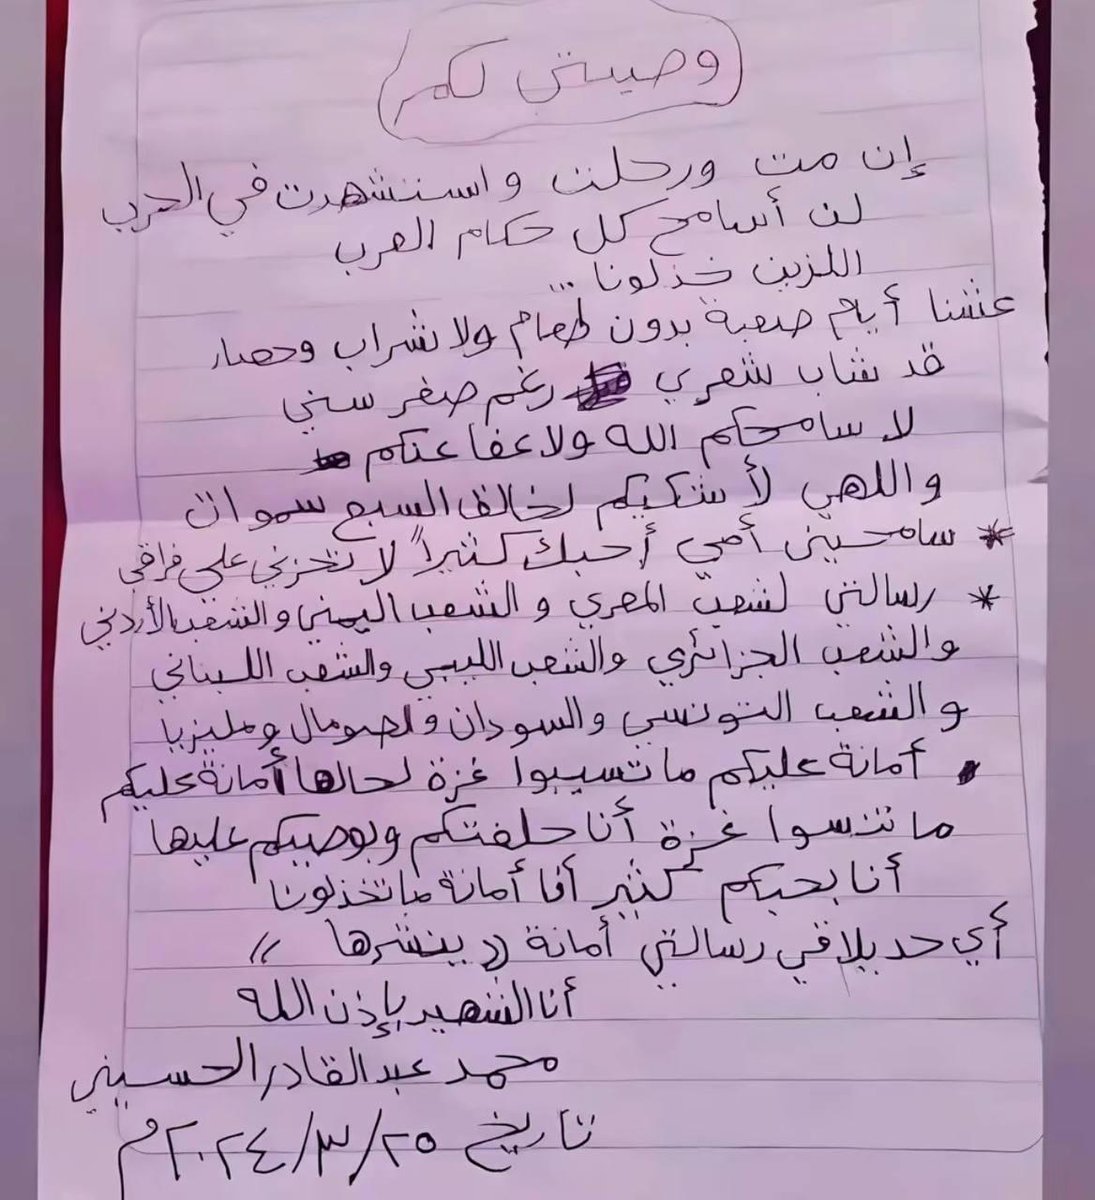 وصيتي لكم
إن مت ورحلت واستشهدت في الحرب
لن أسامح كل حكام العرب
اللزين خذلونا ...
عشنا أيام صعبة بدون طعام ولا شراب وحصار
قد شاب شعري رغم صغر سني
لا سامحكم الله ولا عفا عنكم
واللهي لأشكيكم لخالق السبع سموات
* سامحيني أمي أحبك كثيراً لا تحزني على فراقي
* رسالتي لشعب المصري والشعب اليمني والشعب الأردني
والشعب الجزائري والشعب الليبي والشعب اللبناني
والشعب التونسي والسودان ولصومال ومليزيا
أمانة عليكم ما تسيبوا غزة لحالها أمانة عليكم
ما تنسوا غزة أنا حلفتكم وبوصيكم عليها
أنا بحبكم كثير أنا أمانة ما تخذلونا
أي حد يلاقي رسالتي أمانة (( ينشرها ))
أنا الشهيد بإذن الله
محمد عبد القادر الحسيني
تاريخ ٢٠٢٤/٣/٢٥م